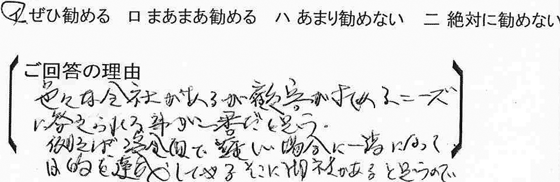 イ ぜひ勧める ロ まあまあ勧める ハ あまり勧めない ニ 絶対に勧めない
ご回答の理由
色々な会社があるが顧客が求めるニーズ
に答えられる事が一番だと思う。
例えば 金面で難しい場合に一緒になって
目的を達成してやる そこに御社があると思うので